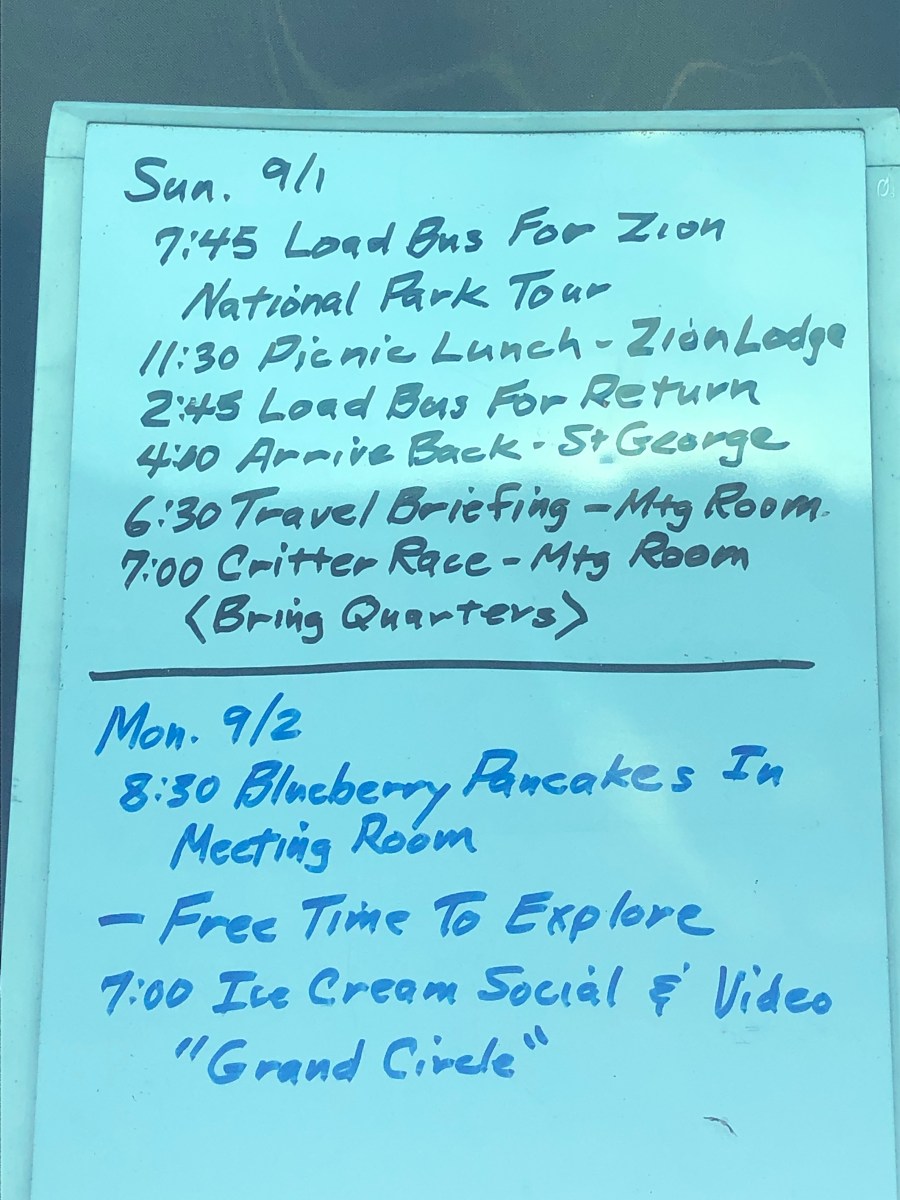 Sun. 9/1
7:45 Load Bus For Zion
National Park Tour
11:30 Picnic Lunch - Zion Lodge
2:45 Load Bus For Return
4:00 Arrive Back - St George
6:30 Travel Briefing - Mtg Room.
7:00 Critter Race - Mtg Room
<Bring Quarters>
Mon. 9/2
8:30 Blueberry Pancakes In
Meeting Room
- Free Time To Explore
7:00 Ice Cream Social & Video
"Grand Circle"